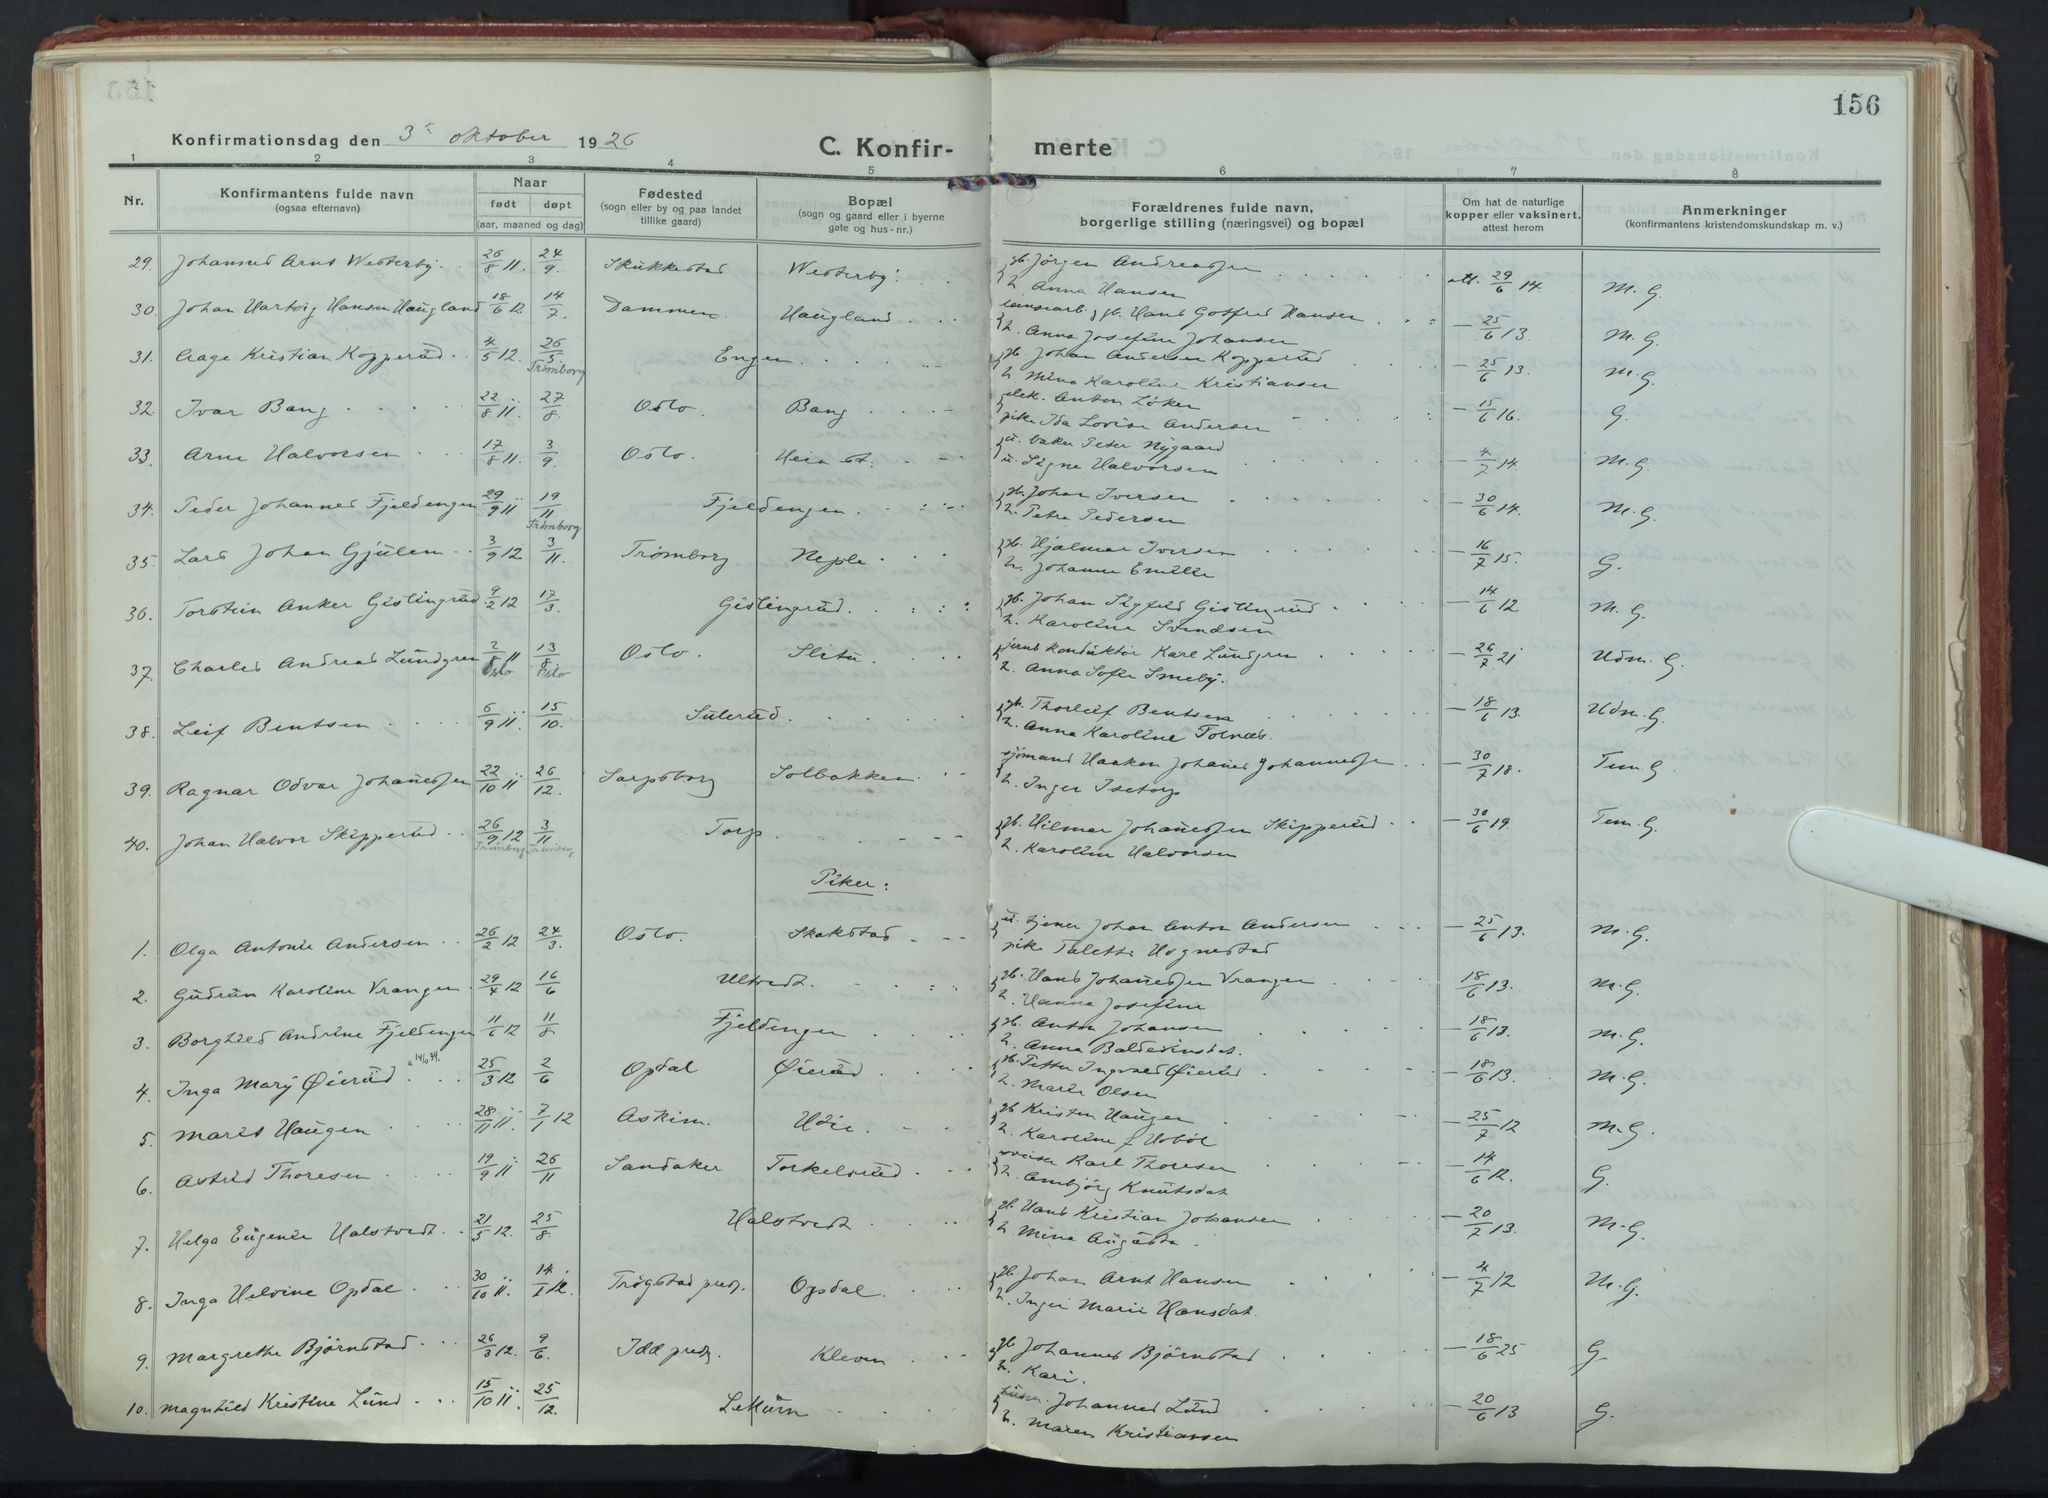 156
Konfirmationsdag den 3' oktober 1926 C. Konfir- merte
1 2 3 4 5 6 7 8
Nr. Konfirmantens fulde navn (ogsaa efternavn) Naar født døpt (aar, maaned og dag) Fødested (sogn eller by og paa landet tillike gaard) Bopæl (sogn og gaard eller i byerne gate og hus-nr.) Forældrenes fulde navn, borgerlige stilling (næringsvei) og bopæl Om hat de naturlige kopper eller vaksinert, attest herom Anmerkninger (konfirmantens kristendomskundskap m. v.)
29. Arnt Westerby 26/8 11. 24/9. Skukkestad Westerby gb. Jørgen Andreassen att. 29/6 14. M. G.
h. Anna Hansen
30. Johan Hartvig Hansen Haugland 18/6 12 14/7. Dammen Haugland gb. Hans Gotfred Hansen - 25/6 13. M. G.
h. Anna Josefine Johansen
31. Aage Kristian Kopperud 4/5 12. 26/5. Trømborg Engen gb. Johan Andersen Kopperud - 25/6 13. M. G.
h. Mina Karoline Kristiansen
32. Ivar Bang 22/8 11 27/8. Oslo. Bang Anton Løken - 15/6 16. G.
pike Ida Lovise Andersen
33. Arne Halvorsen 17/8 11. 3/9. Oslo. u. baker Peter Nygaard - 4/7 14. M. G.
u. Signe Halvorsen
34. Peder Johannes Fjeldengen 29/9 11 19/11 Trømborg Fjeldengen gb. Johan Iversen - 30/6 14. M. G.
h. Petra Pedersen
35. Lars Johan Gjulem 3/9 12 3/11. Trømborg Neple gb. Hjalmar Iversen - 16/7 15. G.
h. Johanne Emilie
36. Torstein Anker Gislingrud 9/2 12 17/3. Gislingrud gb. Johan Sigfred Gislingrud - 14/6 12 M. G.
h. Karoline Svendsen
37. Charles Andreas Lundgren 2/8 11 Oslo 13/8 Oslo Oslo. Slitu konduktør Karl Lundgren - 26/7 21 Udm. G.
h. Anna Sofie Smeby.
38. Leif Bentsen 6/9 11. 15/10. Sulerud gb. Thorleif Bentsen - 18/6 13. Udm. G.
h. Anna Karoline Tofnæs.
39. Ragnar Odvar Johannessen 22/10 11 26/12. Sarpsborg Solbakken sjømand Haakon Johannes Johannessen - 30/7 18. Tem. G.
h. Inger Isetorp
40. Johan Halvor Skipperud 26/9 12 Trømborg 3/11 Trømborg Torp gb. Hilmar Johannessen Skipperud - 30/6 19. Tem. G.
h. Karoline Halvorsen
Piker:
1. Olga Antonie Andersen 26/2 12 24/3. Oslo. Skakstad u. tjener Johan Anton Andersen - 25/6 13. M. G.
pike Talette Hognestad
2. Gudrun Karoline Vrangen 29/4 12 16/6 Ultvedt gb. Hans Johannessen Vrangen - 18/6 13. M. G.
h. Hanna Josefine
3. Borghild Andrine Fjeldengen 11/6 12 11/8 Fjeldengen gb. Anton Johansen - 18/6 13. M. G.
h. Anna Baldevinsdat.
4. Inga Mary Øierud 25/3 12 2/6 Opdal Øierud gb. Petter Ingvald Øierud - 18/6 13. M. G.
h. Marie Olsen
5. Maris Haugen 28/11 11. 7/1 12 Askim. gb Kristen Haugen - 25/7 12 M. G.
h. Karoline f Hobøl
6. Astrid Thoresen 19/9 11 26/11 Sandaker Torkelsrud Karl Thoresen - 14/6 12. G.
h. Ambjørg Knutsdat
7. Helga Eugenie Halstvedt 21/5 12. 25/8 Halstvedt gb. Hans Kristian Johansen - 20/7 13. M. G.
h. Mina Augusta.
8. Inga Helvine Opdal 30/10 11. 14/1 12. Trøgstad Opdal gb. Johan Arnt Hansen - 4/7 12 M. G.
h. Inger Marie Hansdat.
9. Margrethe Bjørnstad 26/3 12. 9/6. Idd Kleven gb. Johannes Bjørnstad - 18/6 25 G.
h. Kari.
10. Magnhild Kristine Lund 15/10 11. 25/12. Lekum Johannes Lund - 20/6 13 G.
h. Maren Kristiansen